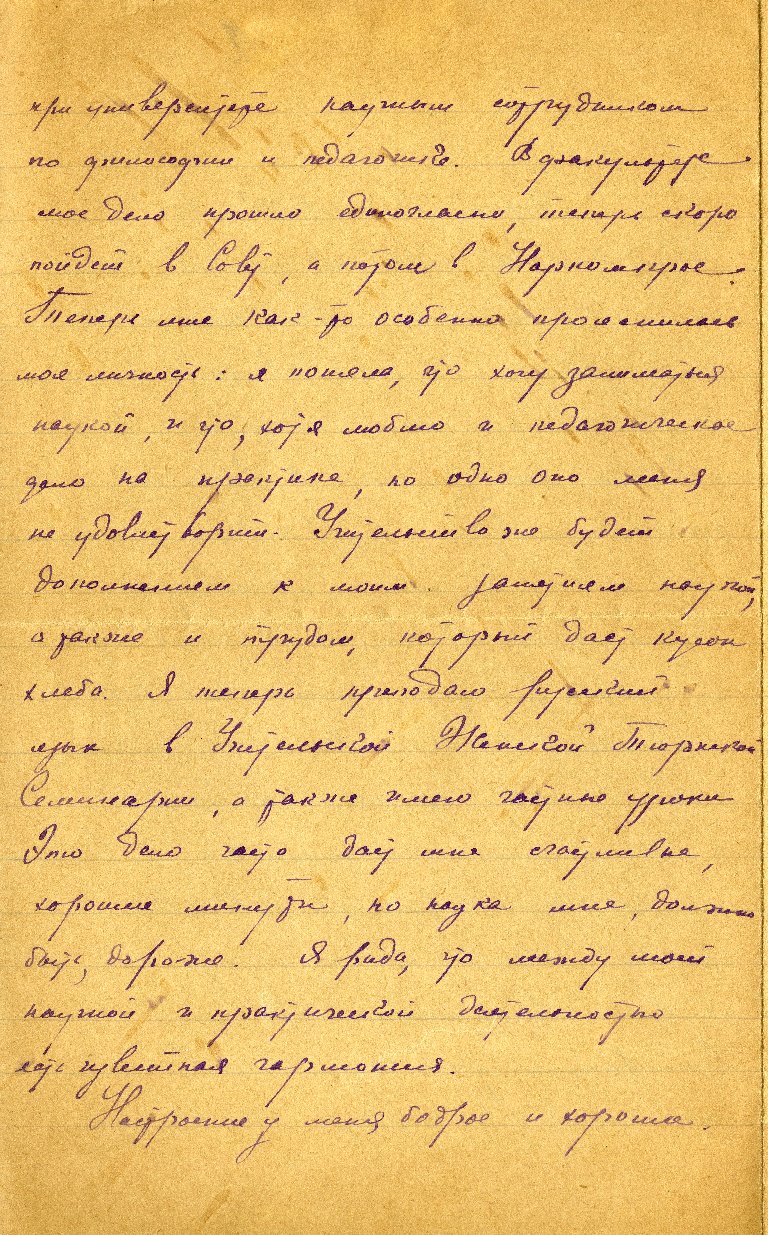 при университете научным сотрудником
по философии и педагогике. В факультете
мое дело прошло единогласно, теперь скоро
пойдет в Совет, а потом в Наркомпрос.
Теперь мне как-то особенно прояснилась
моя личность: я поняла, что хочу заниматься
наукой, и что, хотя люблю и педагогическое
дело на практике, но одно оно меня
не удовлетворит. Учительство же будет
дополнением к моим занятиям наукой,
а также и трудом, который даст кусок
хлеба. Я теперь преподаю русский
язык в Учительской Женской Тюркской
Семинарии, а также имею частные уроки
Это дело часто дает мне счастливые,
хорошие минуты, но наука мне, должно
быть, дороже. Я рада, что между моей
научной и практической деятельностью
есть известная гармония.
Настроение у меня бодрое и хорошее.